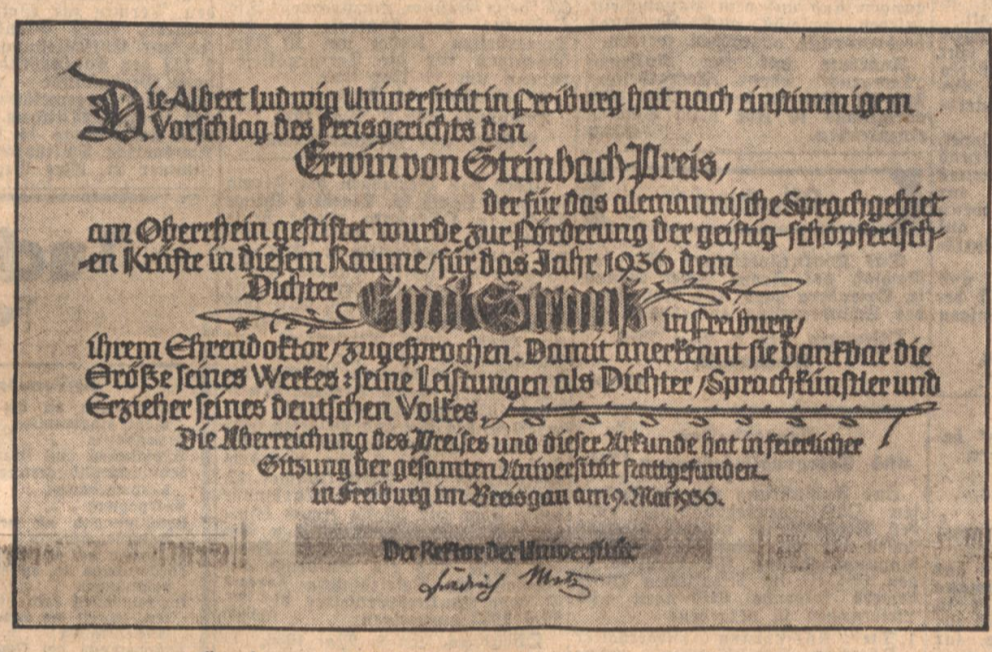 Die Albert Ludwig Universität in Freiburg hat nach einstimmigem
Vorschlag des Preisgerichts den
Erwin von Steinbach-Preis/
der für das alemannische Sprachgebiet
am Oberrhein gestiftet wurde zur Förderung der geistig-schöpferisch-
-en Kräfte in diesem Raume/für das Jahr 1936 dem
Dichter Emil Strauß in Freiburg/
ihrem Ehrendoktor/zugesprochen. Damit anerkennt sie dankbar die
Größe seines Werkes: seine Leistungen als Dichter/Sprachkünstler und
Erzieher seines deutschen Volkes.
Die Überreichung des Preises und dieser Urkunde hat in feierlicher
Sitzung der gesamten Universität stattgefunden.
in Freiburg im Breisgau am 9. Mai 1936.
Der Rektor der Universität
Friedrich Metz